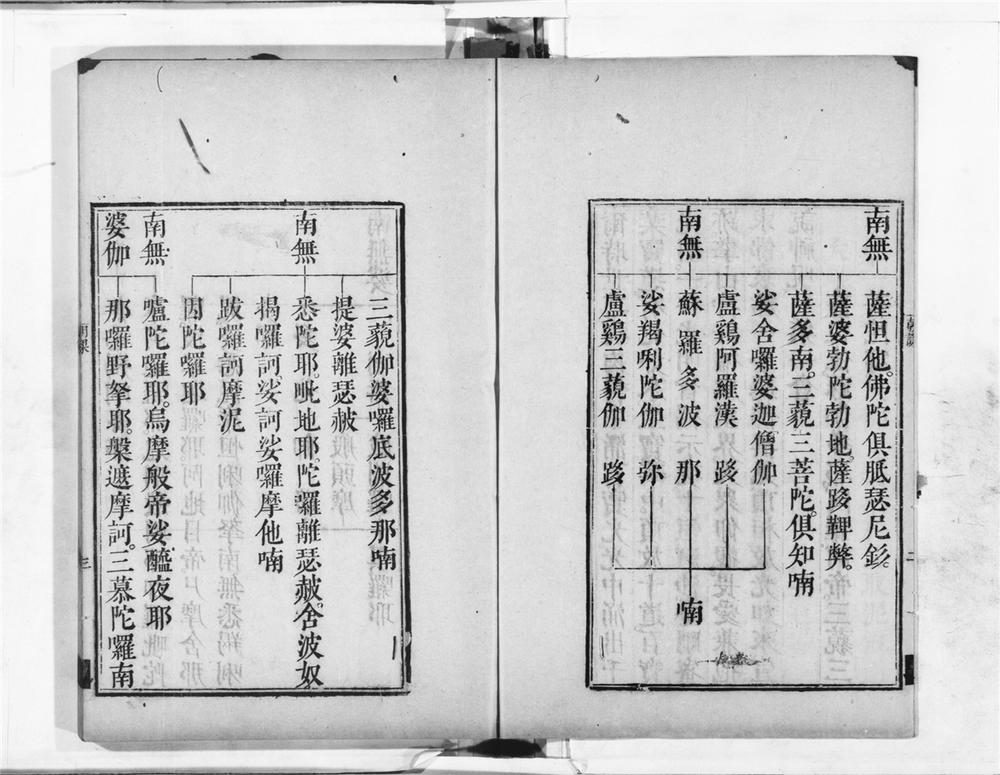 南無
薩怛他。佛陀俱胝瑟尼釤。
薩婆勃陀勃地薩跢鞞弊。
薩多南。三藐三菩陀。俱知喃
娑舍囉婆迦僧伽
盧鷄阿羅漢 跢
南無
蘇羅多波那 喃
娑羯唎陀伽 弥
盧鷄三藐伽 跢
三藐伽婆囉底波多那喃
提婆離瑟赧
南無
悉陀耶。毗地耶。陀囉離瑟赧。舍波奴
揭囉訶。娑訶娑囉摩他喃
跋囉訶摩泥
因陀囉耶
南無
嚧陀囉耶。烏摩般帝娑醯夜耶
婆伽
那囉野拏耶。槃遮摩訶。三慕陀囉南
二
三